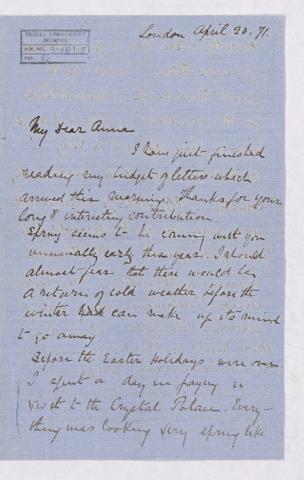 London April 20. 71.
My Dear Anna
I have just finished
reading my budget of letters which
arrived this morning. Thanks for your
long & interesting contribution
Spring seems to be coming with you
unusually early this year. I should
almost fear that there would be
a return of cold weather before the
winter can make up its mind
to go away
Before the Easter Holidays were over
I spent a day in paying a
visit to the Crystal Palace. Every-
thing was looking very spring like